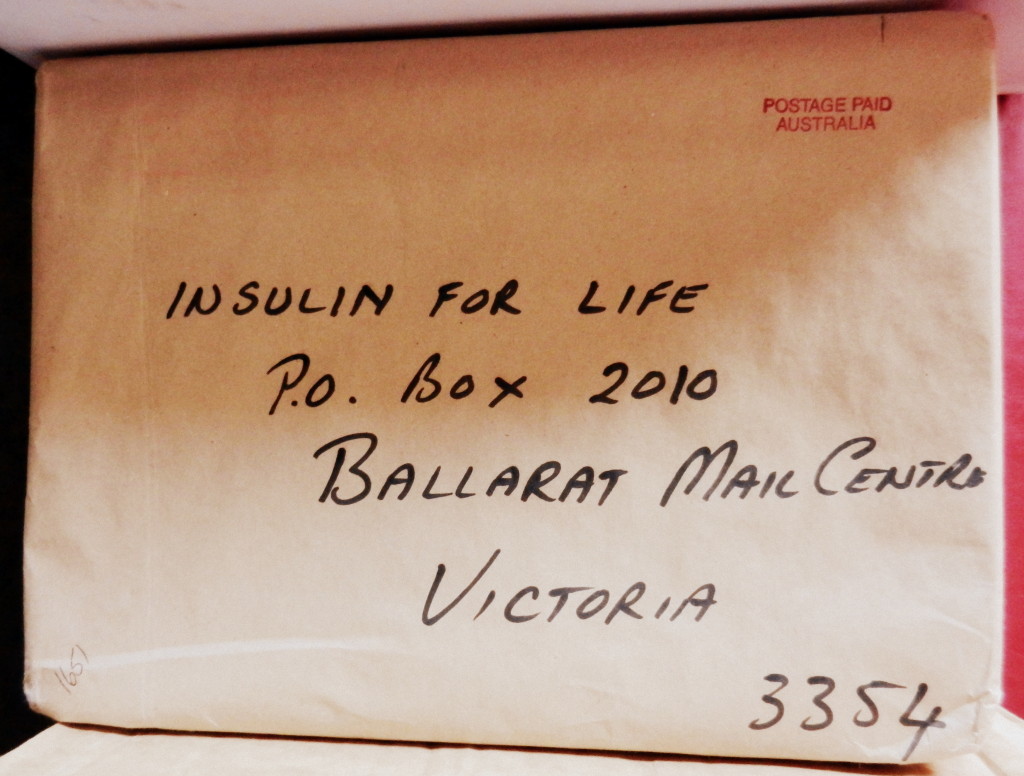 POSTAGE PAID
AUSTRALIA
INSULIN FOR LIFE
P.O. BOX 2010
BALLARAT MAIL CENTRE
VICTORIA
3354
1651